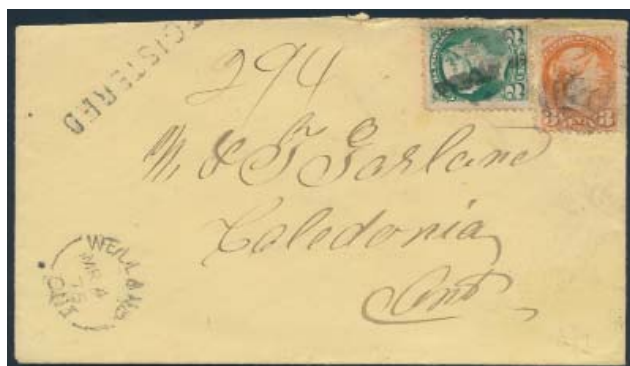 REGISTERED
294
W & F Garland
Caledonia
Ont
WELLAND
MR 4
75
ONT